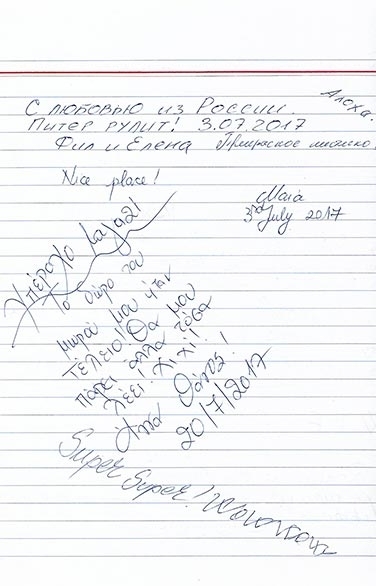 Алоха.
С ЛЮБОВЬЮ ИЗ РОССИИ.
ПИТЕР РУЛИТ! 3.07.2017
ФИЛ и ЕЛЕНА Прекрасное
Nice place!
Maia
3rd July 2017
Υπέροχο μαγαζί
Το δώρο του
μωρού μου ήταν
τέλειο! Θα μου
πάρει αλλά τόσα
λέει! Χι χι!
20/7/2017
Super Super!